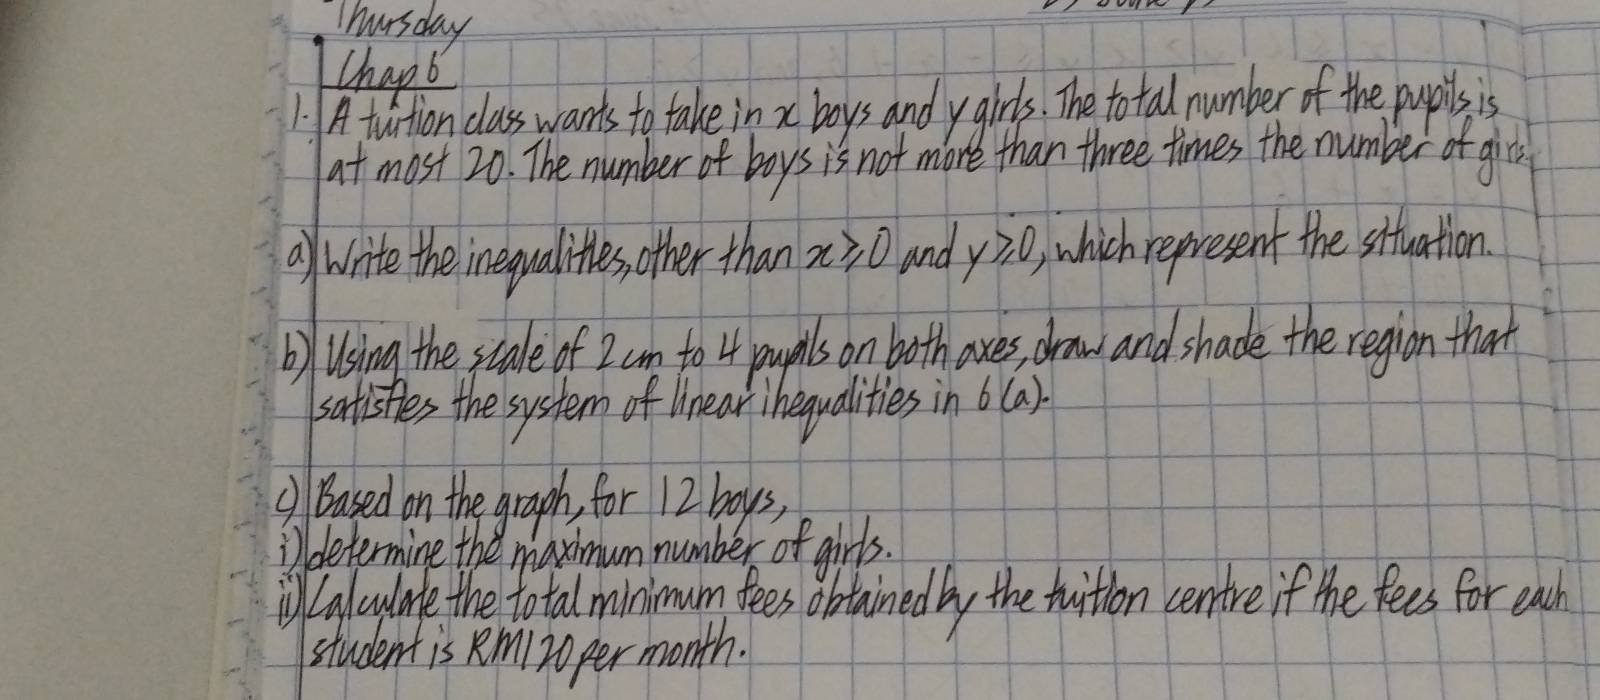 Thursday
Chap 6
1. A tuition class wants to take in x boys and y girls. The total number of the pupils is
at most 20. The number of boys is not more than three times the number of girls.
a) Write the inequalities, other than x ⩾ 0 and y ⩾ 0, which represent the situation.
b) Using the scale of 2 cm to 4 pupils on both axes, draw and shade the region that
satisfies the system of linear inequalities in 6 (a).
c) Based on the graph, for 12 boys,
i) determine the maximum number of girls.
ii) Calculate the total minimum fees obtained by the tuition centre if the fees for each
student is RM120 per month.